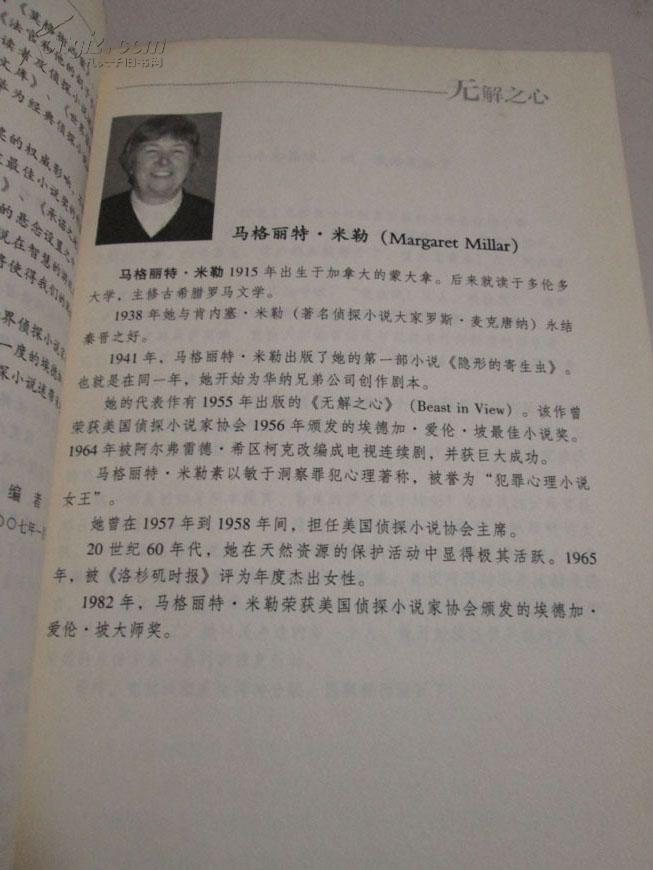 无解之心
马格丽特·米勒（Margaret Millar）
马格丽特·米勒 1915 年出生于加拿大的蒙大拿。后来就读于多伦多
大学，主修古希腊罗马文学。
1938 年她与肯内塞·米勒（著名侦探小说大家罗斯·麦克唐纳）永结
秦晋之好。
1941 年，马格丽特·米勒出版了她的第一部小说《隐形的寄生虫》。
也就是在同一年，她开始为华纳兄弟公司创作剧本。
她的代表作有 1955 年出版的《无解之心》（Beast in View）。该作曾
荣获美国侦探小说家协会 1956 年颁发的埃德加·爱伦·坡最佳小说奖。
1964 年被阿尔弗雷德·希区柯克改编成电视连续剧，并获巨大成功。
马格丽特·米勒素以敏于洞察罪犯心理著称，被誉为“犯罪心理小说
女王”。
她曾在 1957 年到 1958 年间，担任美国侦探小说协会主席。
20 世纪 60 年代，她在天然资源的保护活动中显得极其活跃。1965
年，被《洛杉矶时报》评为年度杰出女性。
1982 年，马格丽特·米勒荣获美国侦探小说家协会颁发的埃德加·
爱伦·坡大师奖。
读书及侦探小说
文库》、《世界
奉为经典侦探小
的权威影响，
最佳小说奖的
的悬念设置之
说在智慧的
将使得我们的
界侦探小说
一度的埃德加
探小说迷带
编者
〇〇七年一